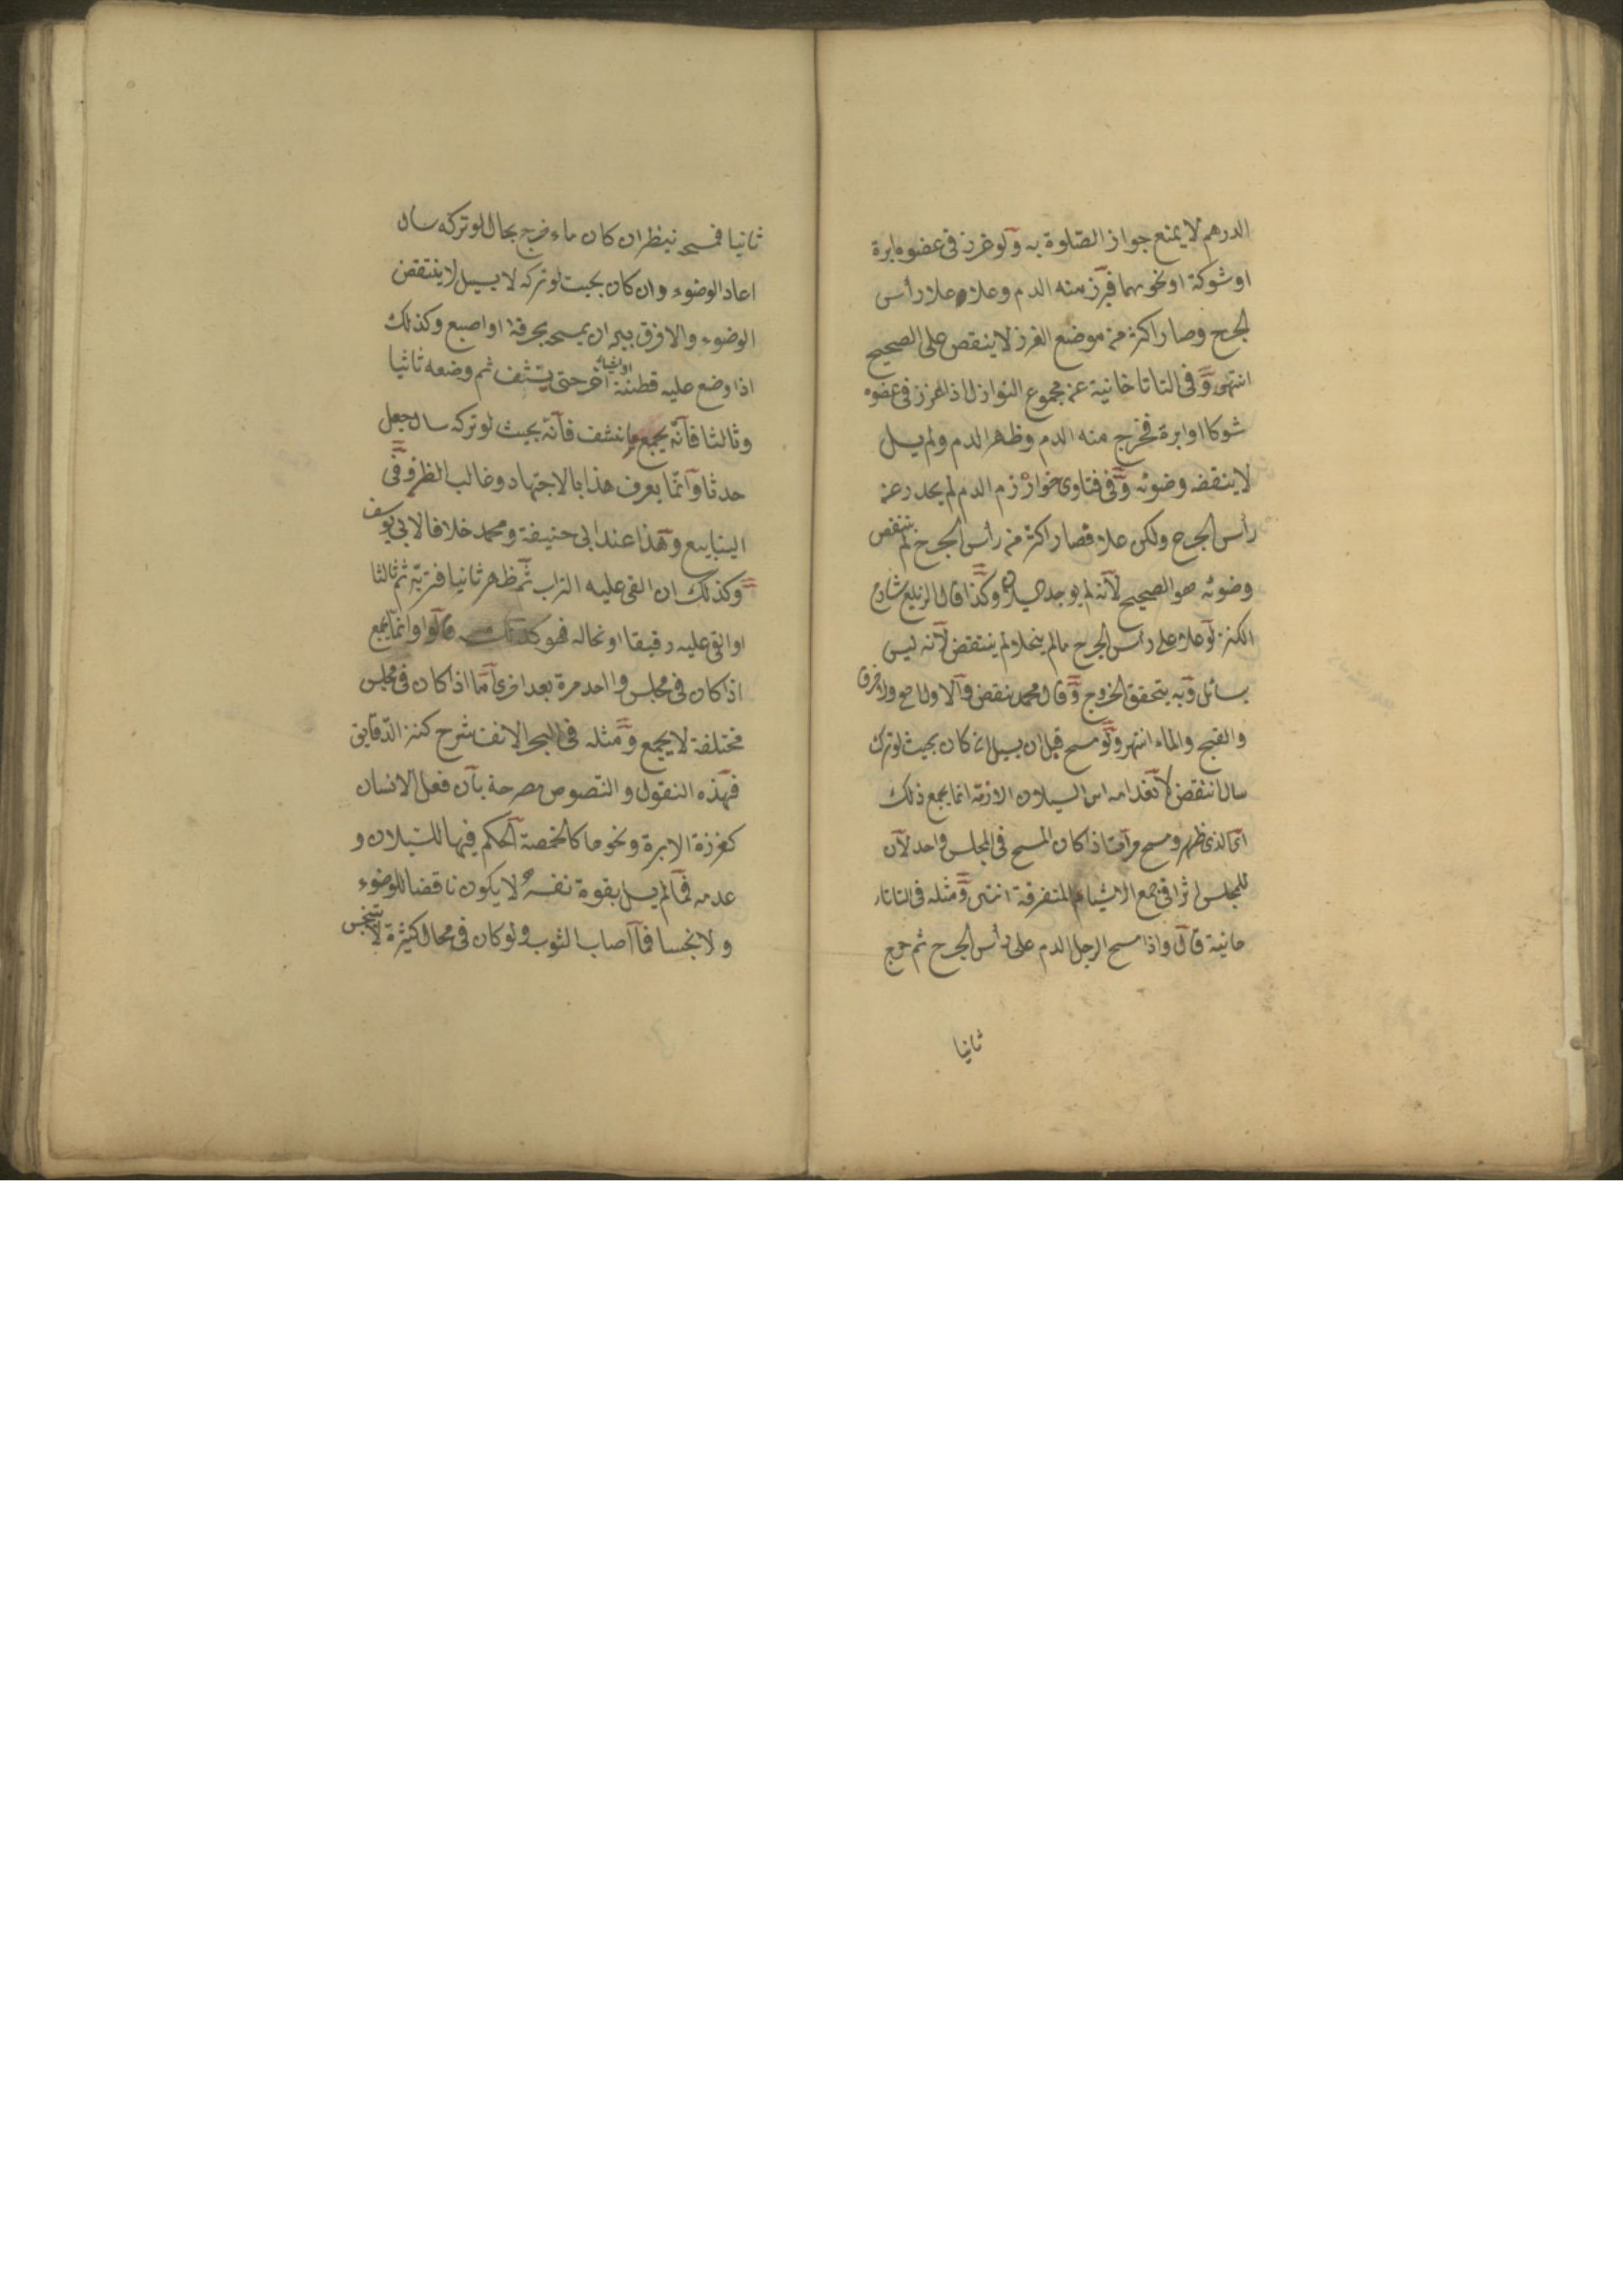 الدرهم لا يمنع جواز الصلوة به ولو غرز فى عضوه ابرة
او شوكة او نحوهما فبرز منه الدم وعلا علا رأس
الجرح وصار اكثر من موضع الغرز لا ينقض على الصحيح
انتهى وفى التاتارخانية عن مجموع النوازل اذا غرز فى عضوه
شوكا او ابرة فخرج منه الدم وظهر الدم ولم يسل
لا ينتقض وضوئه وفى فتاوى خوارزم الدم لم يحدر عن
رأس الجرح ولكن علا فصار اكثر من رأس الجرح لم ينتقض
وضوئه هو الصحيح لانه لم يوجد السيلان وكذا قال الزيلعى شارح
الكنز لو علا على رأس الجرح مالم ينحدر لم ينتقض لانه ليس
بسائل وبه يتحقق الخروج وقال محمد ينقض والاول اصح والخرق
والقيح والماء انتهى ولو مسح قبل ان يسيل ان كان بحيث لو ترك
سال انتقض السيلان انما يجمع ذلك
الذى ظهر ومسح مرات اذا كان المسح فى المجلس واحد لان
للمجلس اثرا فى جمع الاشياء المتفرقة انتهى ومثله فى التاتار
خانية قال واذا مسح الرجل الدم على رأس الجرح ثم خرج
ثانيا
ثانيا فمسح ينظر ان كان ماء خرج بحال لو تركه سال
اعاد الوضوء وان كان بحيث لو تركه لا يسيل لا ينتقض
الوضوء ولا فرق بين ان يمسحه بخرقة او اصبع وكذلك
اذا وضع عليه قطنة او شيئا اخر حتى ينشف ثم وضعه ثانيا
وثالثا فانه يجمع ما نشف فانه بحيث لو تركه سال جعل
حدثا وانما يعرف هذا بالاجتهاد وغالب الظن وفى
الينابيع وهذا عند ابى حنيفة ومحمد خلافا لابى يوسف
وكذلك ان القى عليه التراب ثم ظهر ثانيا فتربه ثم ثالثا
او القى عليه دقيقا او نخاله فهو كذلك قالوا وانما يجمع
اذا كان فى مجلس واحد مرة بعد اخرى اما اذا كان فى مجلس
مختلفة لا يجمع ومثله فى البحر الانف شرح كنز الدقايق
فهذه النقول والنصوص مصرحة بان فعل الانسان
كغرزة الابرة ونحوها كالحمصة الحكم فيها للسيلان و
عدمه فمالم يسل بقوة نفسه لا يكون ناقضا للوضوء
ولا نجسا فما اصاب الثوب ولو كان فى محال كثيرة لا يتنجس